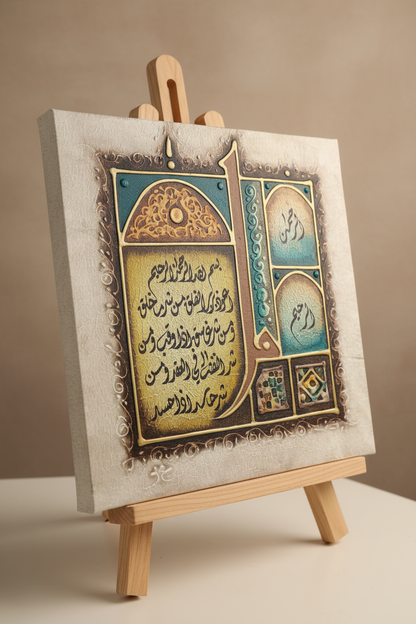 بسم الله الرحمن الرحيم
اعوذ برب الفلق من شر ما خلق
ومن شر غاسق اذا وقب ومن
شر النفثت في العقد ومن
شر حاسد اذا حسد
الرحمن
الرحيم